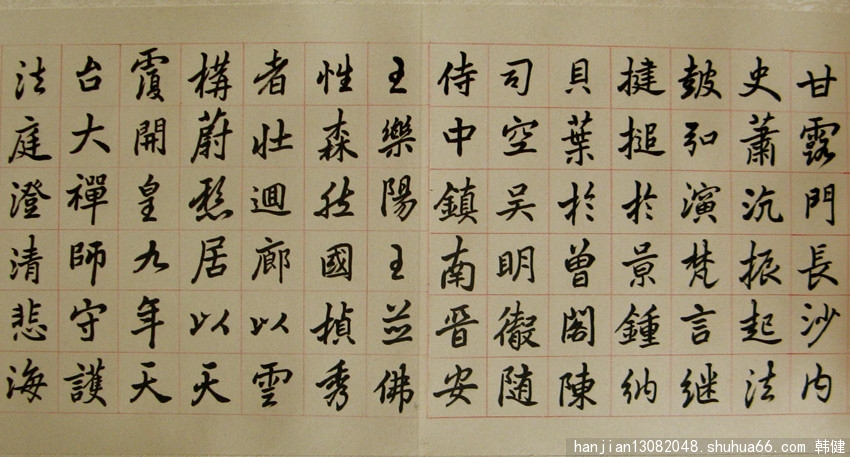 甘露門長沙内
史蕭沆振起法
皷弘演梵言継
揵搥於景鍾納
貝葉於曾閣陳
司空吴明徹随
侍中鎮南晋安
王樂陽王並佛
性森然國楨秀
者壮迴廊以雲
構蔚懸居以天
覆開皇九年天
台大禪師守護
法庭澄清悲海
hanjian13082048.shuhua66.com 韩健